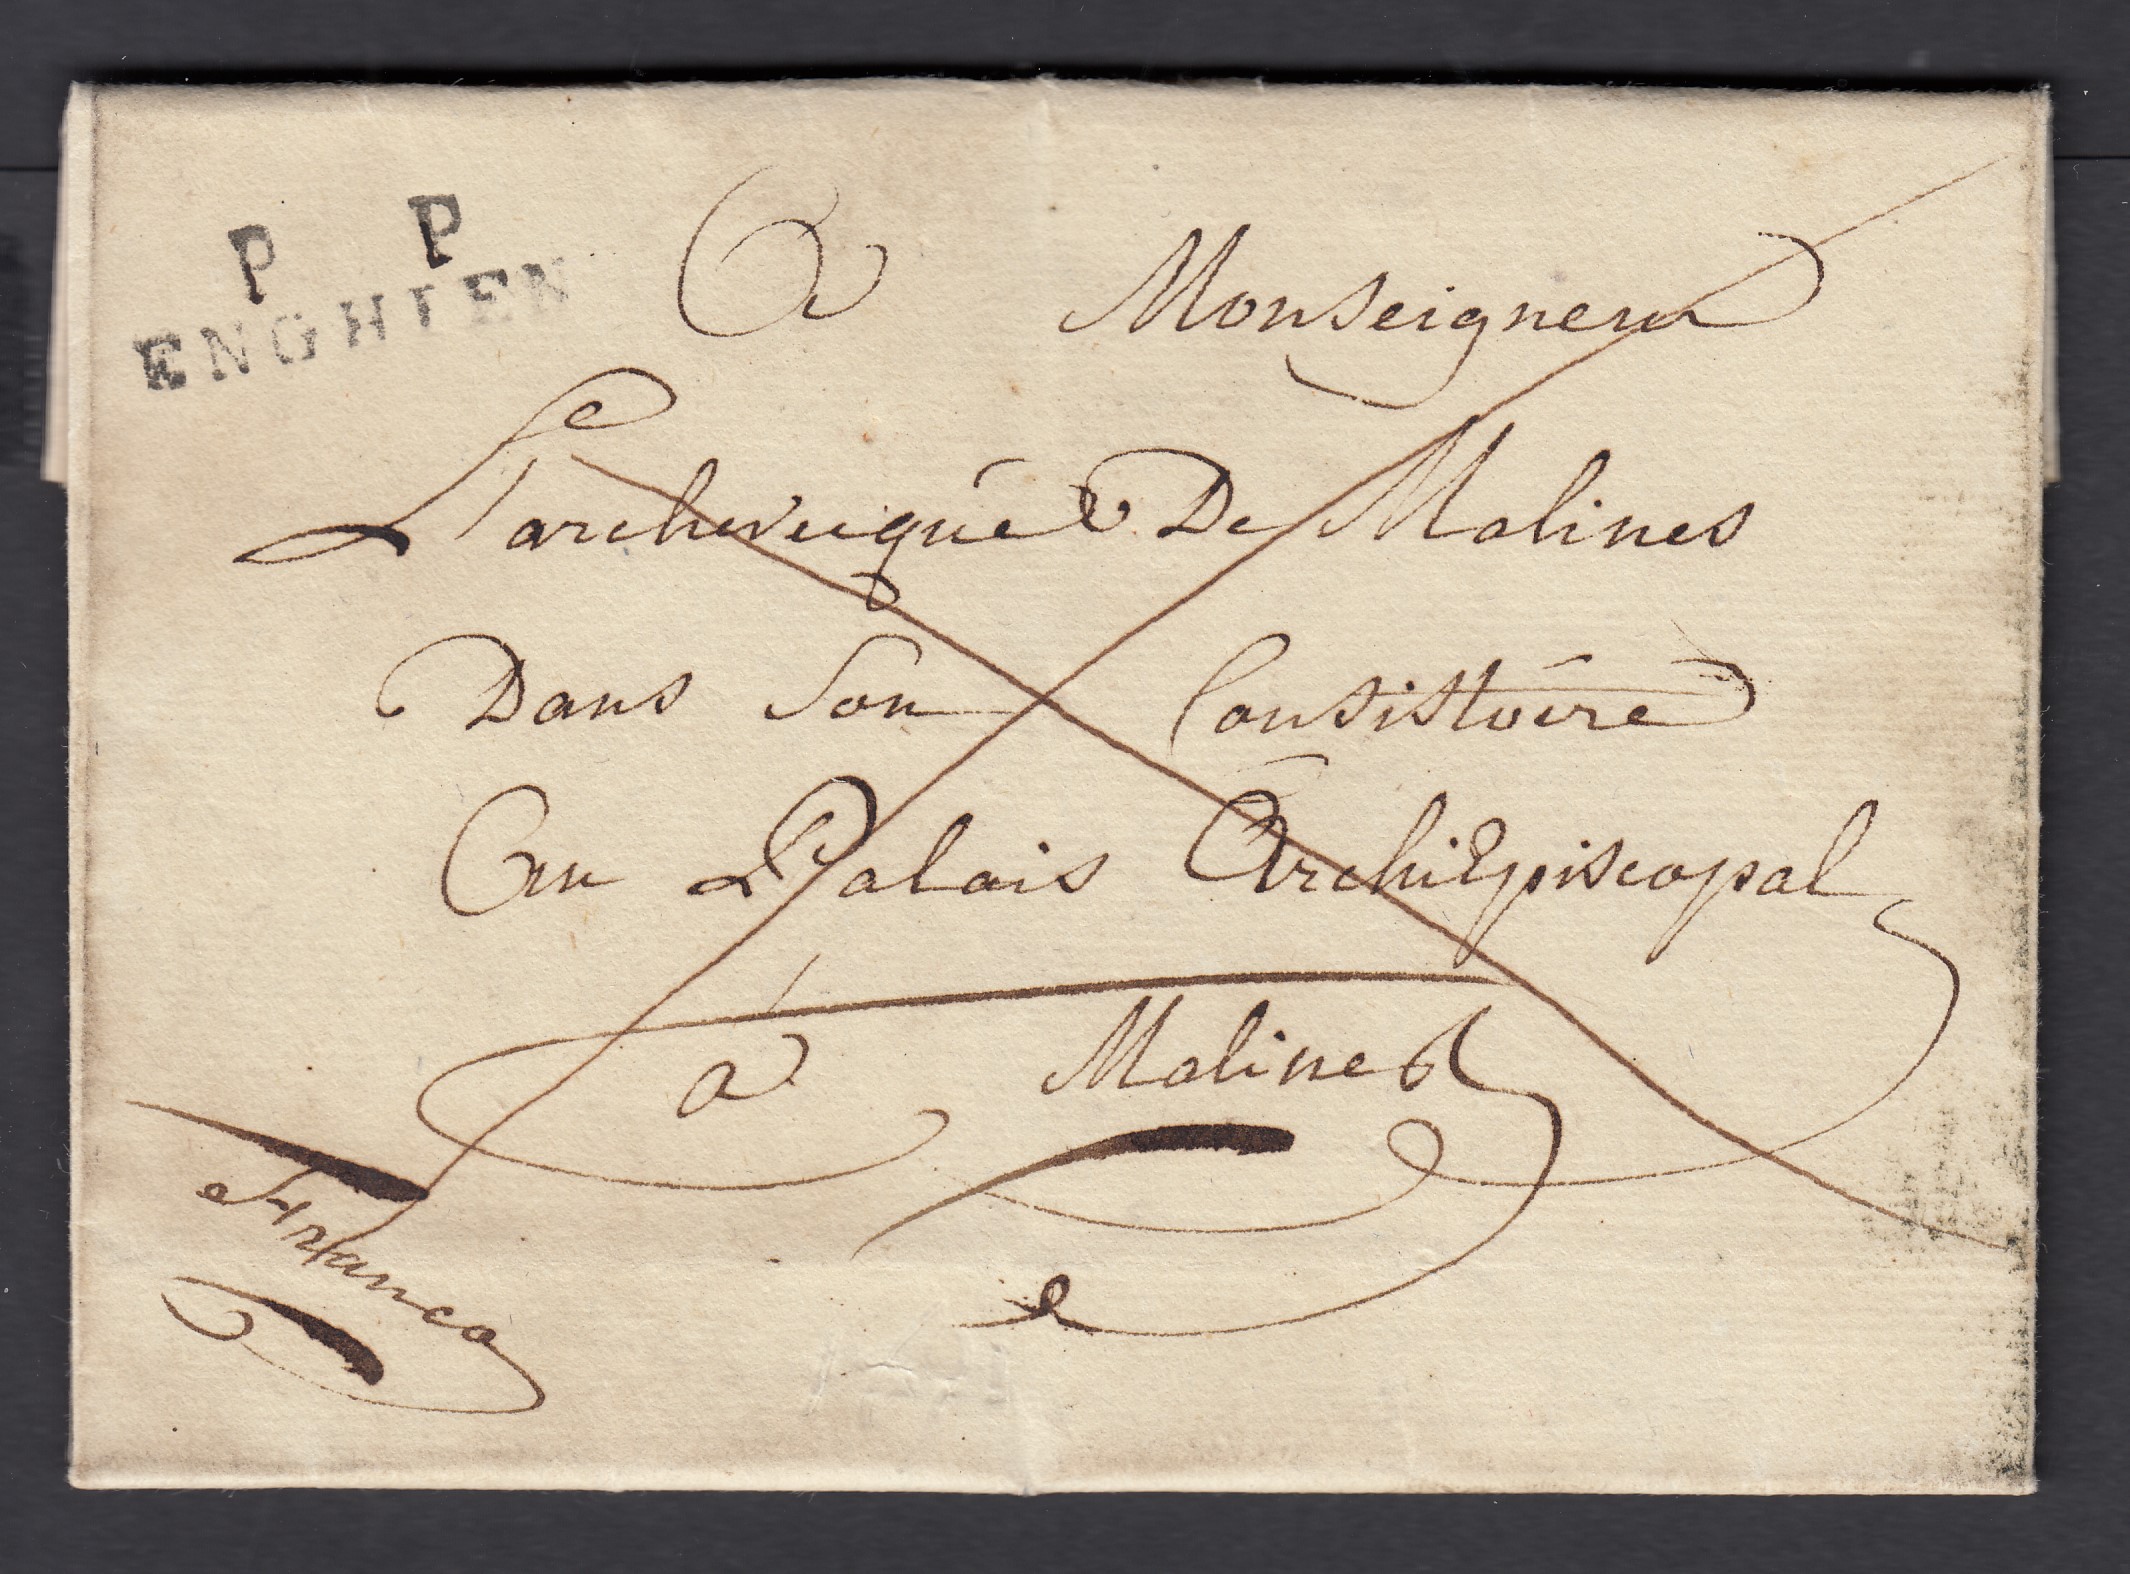 P P
ENGHIEN
A Monseigneur
L'archevêque De Malines
Dans Son Consistoire
En Palais ArchiEpiscopal
à Malines
Franco